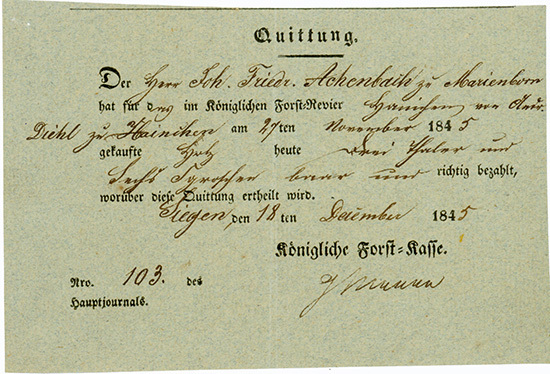 Quittung.
Der Herr Joh. Friedr. Achenbach zu Marienborn
hat für das im Königlichen Forst-Revier Hainchen von
Diehl zu Hainchen am 27ten November 1845
gekaufte Holz heute Drei Thaler und
Sechs Sgroschen baar und richtig bezahlt,
worüber diese Quittung ertheilt wird.
Siegen, den 18ten December 1845
Königliche Forst-Kasse.
Nro. 103. des
Hauptjournals.